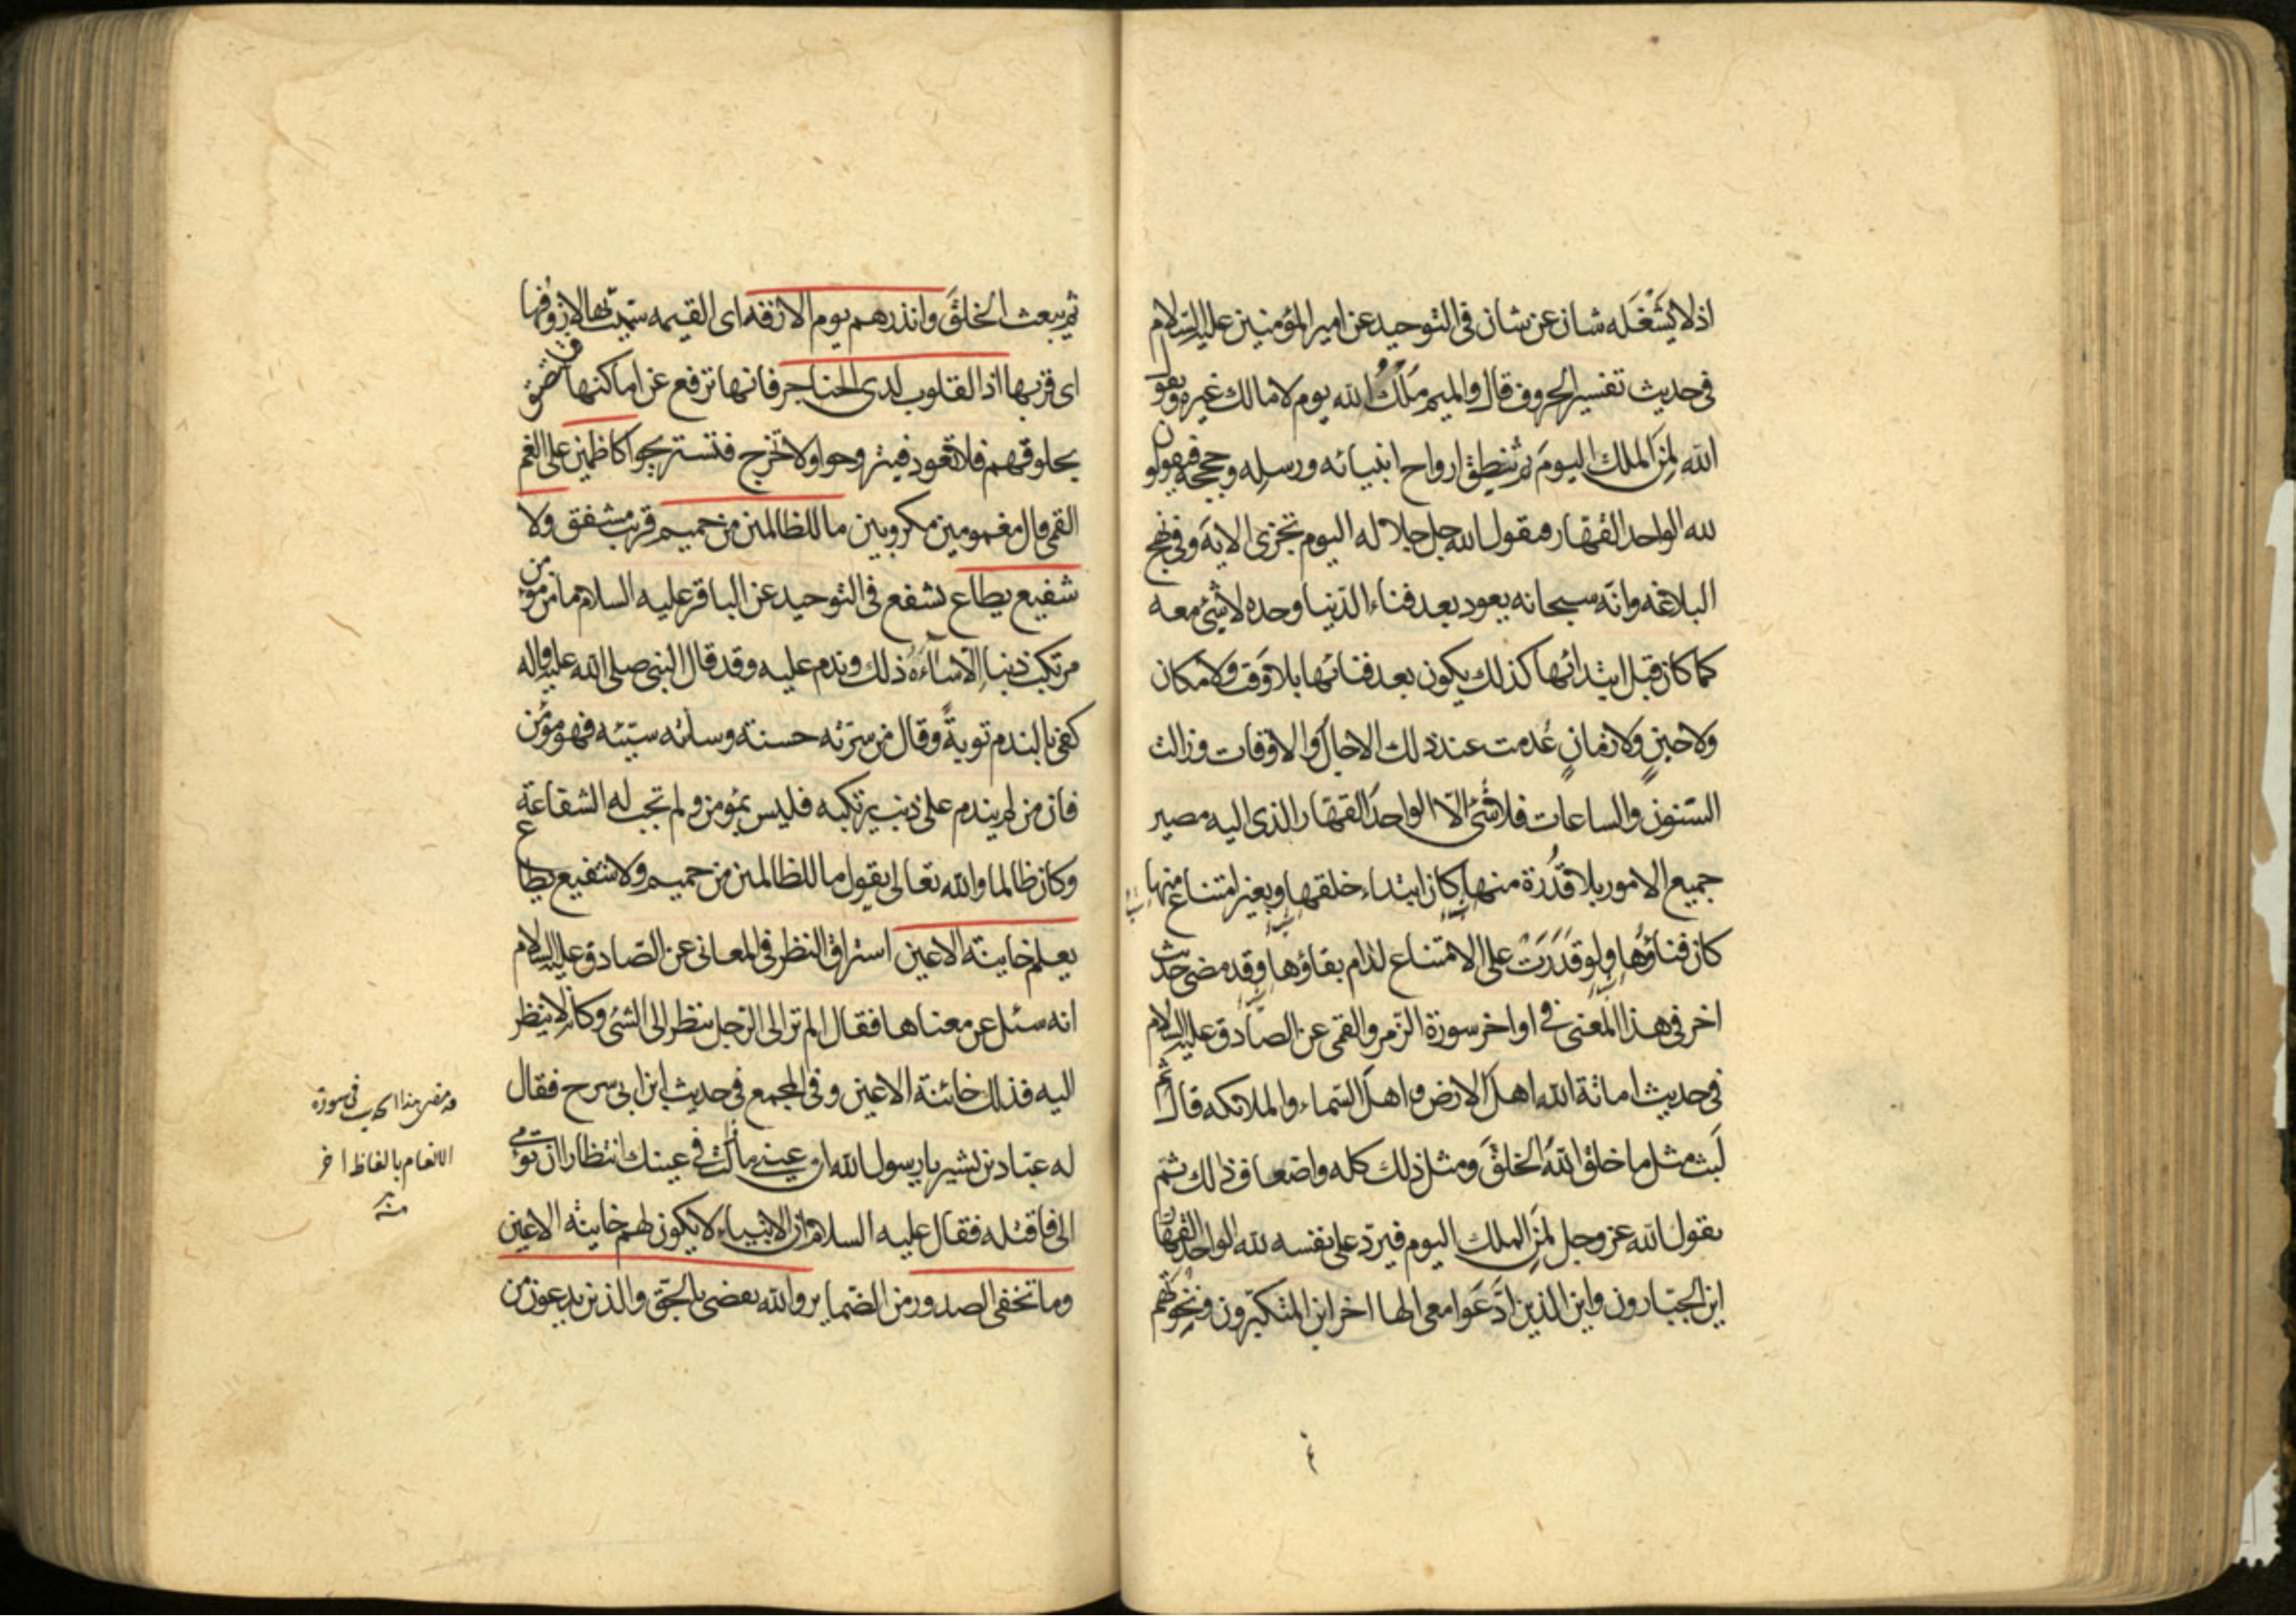 اذ لا يَشْغَله شان عن شان فى التوحيد عن امير المؤمنين عليه السلام
فى حديث تفسير الحروف قال والميم مُلكُ الله يوم لا مالك غيره ويقول
الله لِمَن الملك اليومَ ثم تنطق ارواح انبيائه ورسله وحججه فيقولون
لله الواحد القهار فيقول الله جل جلاله اليوم تجزى الاية وفى نهج
البلاغه وانّه سبحانه يعود بعد فناء الدّنيا وحده لا شئ معه
كما كان قبل ابتدائها كذلك يكون بعد فنائها بلا وَقت ولا مكان
ولا حينٍ ولا زمانٍ عُدمت عند ذلك الاجال والاوقات وزالت
السّنون والساعات فلا شئ الّا الواحد القهّار الذى اليه مصير
جميع الامور بلا قدُرة منها كان ابتداء خلقها وبغير امتناع منها
كان فناؤها ولو قدَرَت على الامتناع لدام بقاؤها وقد مضى حديث
اخر فى هذا المعنى فى اواخر سورة الزمر والقمى عن الصّادق عليه السلام
فى حديث اماتة الله اهلَ الارض واهل السّماء والملائكه قال ثم
لَبِث مثل ما خلق اللهُ الخلقَ ومثل ذلك كله واضعاف ذلك ثمّ
يقول الله عز وجل لمَنِ الملك اليوم فيردّ على نفسه لله الواحد القهّار
اين الجبّارون واين الذين ادَّعَوا معى الها اخر اين المتكبّرون ونخوتهم
ثم يبعث الخلقَ وانذرهم يوم الازفه اى القيمه سمّيت بها لازوفها
اى قربها اذ القلوب لدى الحناجر فانها ترفع عن اماكنها فتلتصق
بحلوقهم فلا تعود فيتروحوا ولا تخرج فتستريحوا كاظمين على الغم
القمى قال مغمومين مكروبين ما للظالمين من حميم قريب مشفق ولا
شفيع يطاع يشفع فى التوحيد عن الباقر عليه السلام ما من مؤمن
مرتكب ذنبا الّا ساءَه ذلك وندم عليه وقد قال النبى صلى الله عليه واله
كفى بالندم توبةً وقال من سرّته حسنته وسائته سيّئه فهو مؤمن
فان من لم يندم على ذنب يرتكبه فليس بمؤمن ولم تجب له الشفاعة
وكان ظالما والله تعالى يقول ما للظالمين من حميم ولا شفيع يطاع
يعلم خاينة الاعين استراق النظر فى المعانى عن الصّادق عليه السلام
انه سئل عن معناها فقال الم تر الى الرّجل ينظر الى الشئ وكانّه لا ينظر
اليه فذلك خائنة الاعين وفى المجمع فى حديث ابن ابى سرح فقال
له عبّاد بن بشير يا رسول الله ان عينى ما زالت فى عينك انتظارا ان تؤمى
الى فاقتله فقال عليه السلام ان الانبياء لا يكون لهم خاينة الاعين
وما تخفى الصدور من الضّماير والله يقضى بالحقّ والذين يدعون من
قد مضى هذا الحديث فى سورة
الانعام بالفاظ اخر
منه